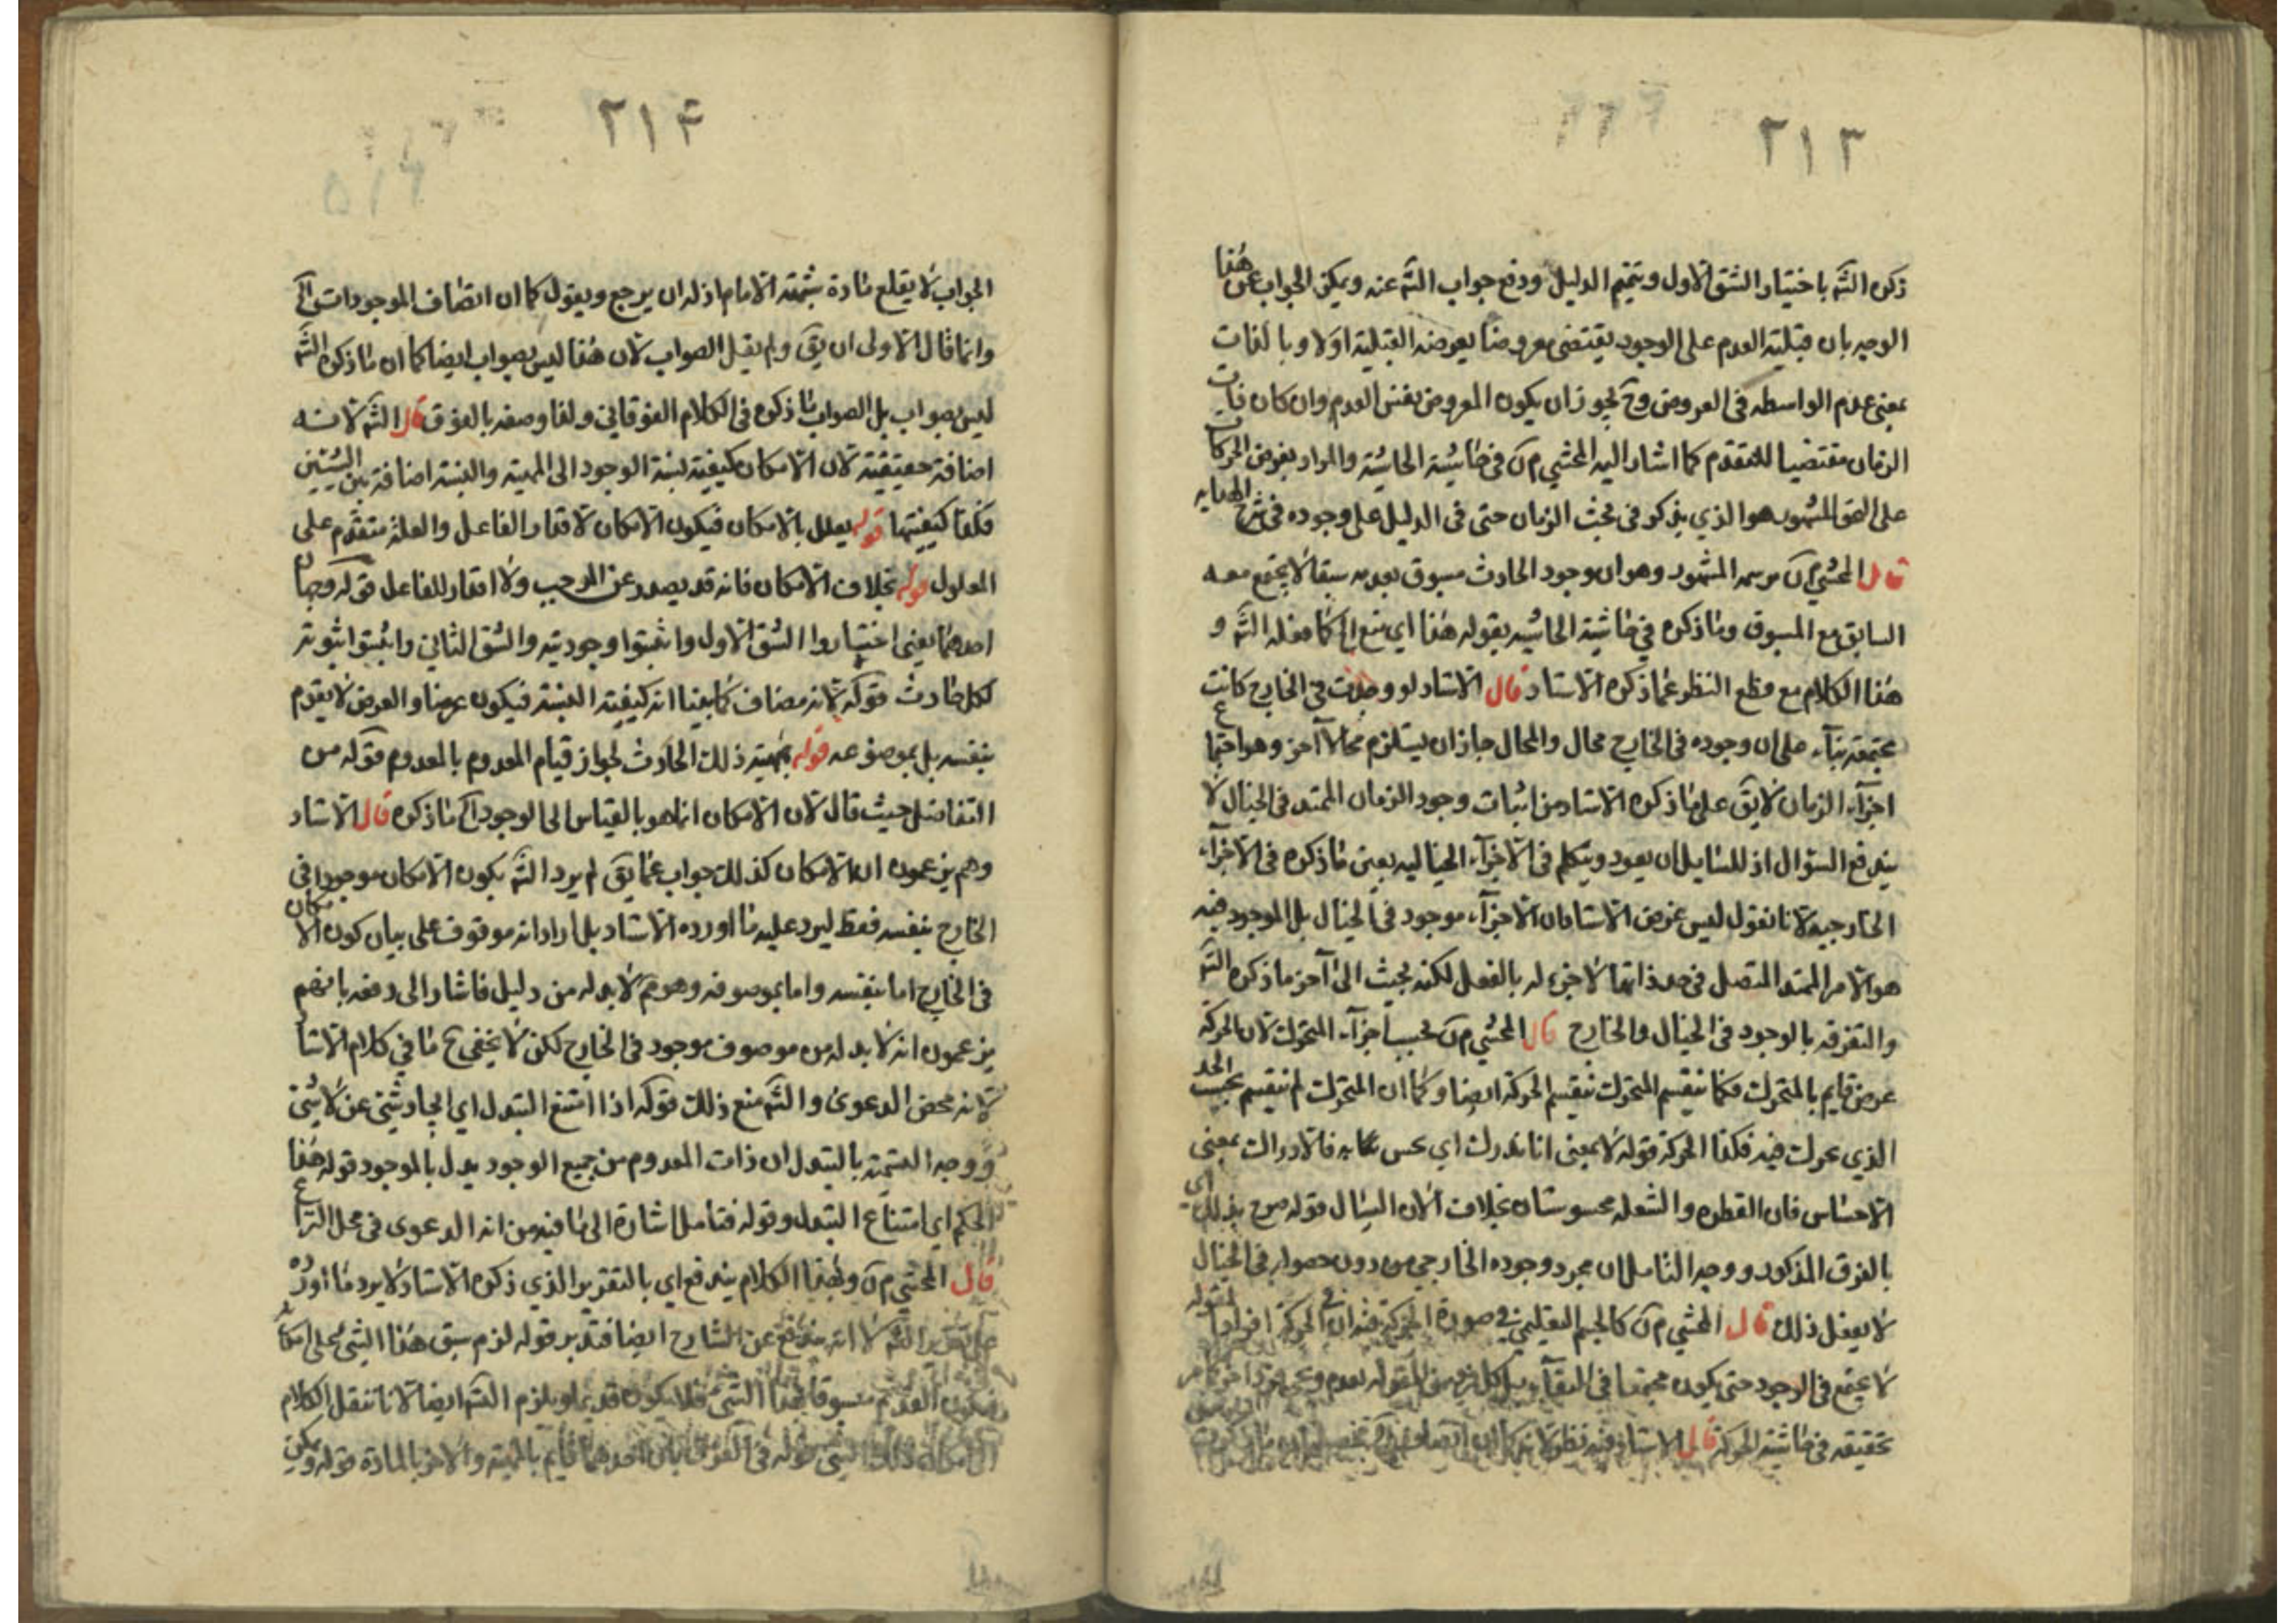 ٢١٣
ذكره الشَّه باختيار الشق الاول وتتميم الدليل ودفع جواب الشَّه عنه ويمكن الجواب عن هٰذا
الوجه بان قبلية العدم على الوجود يقتضى معروضا يعرضه القبلية اولا وبالذات
بمعنى عدم الواسطه فى العروض وح يجوز ان يكون المعروض نفس العدم وان كان ذات
الزمان مقتضيا للتقدم كما اشار اليه المحشي م ن فى حاشية الحاشية والمراد بعروض الحركات
على النحو المشهور هو الذي يذكر فى بحث الزمان حتى فى الدليل على وجوده فى شرح الهدايه
قال المحشي م ن رسمه المشهور وهو ان وجود الحادث مسبوق بعدمه سبقا لا يجتمع معه
السابق مع المسبوق وما ذكره في حاشية الحاشيه بقوله هٰذا اي منع الخ كما فعله الشَّه و
هٰذا الكلام مع قطع النظر عما ذكره الاستاد قال الاستاد لو وجدت فى الخارج كانت
مجتمعة بناء على ان وجوده فى الخارج محال والمحال جاز ان يستلزم محالا آخر وهو اجتماع
اجزآء الزمان لا يق على ما ذكره الاستاد من اثبات وجود الزمان الممتد فى الخيال لا
يندفع السؤال اذ للسايل ان يعود ويتكلم فى الاجزآء الخياليه بعين ما ذكره فى الاجزآء
الخارجيه لانا نقول ليس غرض الاستاد ان الاجزآء موجود فى الخيال بل الموجود فيه
هو الامر الممتد المتصل فى حد ذاتها لا جزء له بالفعل لكنه بحيث الى آخر ما ذكره الشَّه
والتفرقه بالوجود فى الخيال والخارج قال المحشي م ن بحسب اجزآء المتحرك لان الحركة
عرض قايم بالمتحرك فكما ينقسم المتحرك ينقسم الحركة ايضا وكما ان المتحرك لم ينقسم بحسب الحد
الذي تحرك فيه فكذا الحركة قوله لا بمعنى انا ندرك اي نحس به فالادراك بمعنى
الاحساس فان القطره والشعله محسوستان بخلاف الان السيال قوله صرح بذلك اي
بالفرق المذكور ووجه التامل ان مجرد وجوده الخارجي من دون حصوله فى الخيال
لا يفعل ذلك قال المحشي م ن كالجسم التعليمي في صورة الحركة فيه ان فى الحركة افراد المقوله
لا يجتمع فى الوجود حتى يكون مجتمعا فى البقآء بل كل فرد من المقوله يعدم
تحقيقه فى حاشية الحركة قال الاستاد فيه نظر لا يذكر
٢١۴
الجواب لا يقلع مادة شبهة الامام اذ له ان يرجع ويقول كما ان اتصاف الموجودات الخ
وانما قال الاولى ان يق ولم يقل الصواب لان هٰذا ليس بصواب ايضا كما ان ما ذكره الشَّه
ليس بصواب بل الصواب ما ذكره فى الكلام الفوقانى ولذا وصفه بالفوق قال الشَّه لانه
اضافة حقيقية لان الامكان كيفية لنسبة الوجود الى المهية والنسبة اضافة بين الشيئين
فكذا كيفيتها قوله يعلل بالامكان فيكون الامكان لاقتدار الفاعل والعلة متقدم على
المعلول قوله بخلاف الامكان فانه قد يصدر عن الموجب ولا اقتدار للفاعل قوله وجهان
احدهما يعنى اختاروا الشق الاول واثبتوا وجوديته والشق الثانى واثبتوا ثبوته
لكل حادث قوله لانه مضاف كما بينا انه كيفية النسبة فيكون عرضا والعرض لا يقوم
بنفسه بل بموضوعه قوله بمهية ذلك الحادث لجواز قيام المعدوم بالمعدوم قوله من
التفاضل حيث قال لان الامكان انما هو بالقياس الى الوجود الخ ما ذكره قال الاستاد
وهم يزعمون ان الامكان كذلك جواب عما يق لم يرد الشَّه بكون الامكان موجودا في
الخارج بنفسه فقط ليرد عليه ما اورده الاستاد بل اراد انه موقوف على بيان كون الامكان
فى الخارج اما بنفسه واما بموصوفه وهو ثَم لا بد له من دليل فاشار الى دفعه بانهم
يزعمون انه لا بد له من موصوف موجود فى الخارج لكن لا يخفى ح ما في كلام الاستاد
لانه محض الدعوى والشَّه منع ذلك قوله اذا امتنع التبدل اي ايجاد شئ عن لا شئ
ووجه التسميه بالتبدل ان ذات المعدوم من جميع الوجود بدل بالموجود قوله هٰذا
الحكم اي امتناع التبدل وقوله فتامل اشارة الى ما فيه من انه الدعوى فى محل النزاع
قال المحشي م ن وبهٰذا الكلام يندفع اي بالتقرير الذي ذكره الاستاد لا يرد ما اورده
على تقرير الشَّه لا انه يندفع عن الشارح ايضا فتدبر قوله لزم سبق هٰذا الشئ على امكانه
فيكون القديم مسبوقا بهٰذا الشئ فلا يكون قديما ويلزم الشَّه ايضا لانا ننقل الكلام
الى امكان ذلك الشئ قوله فى الفرق بان احدهما قايم بالمهية والاخر بالمادة قوله ويمكن